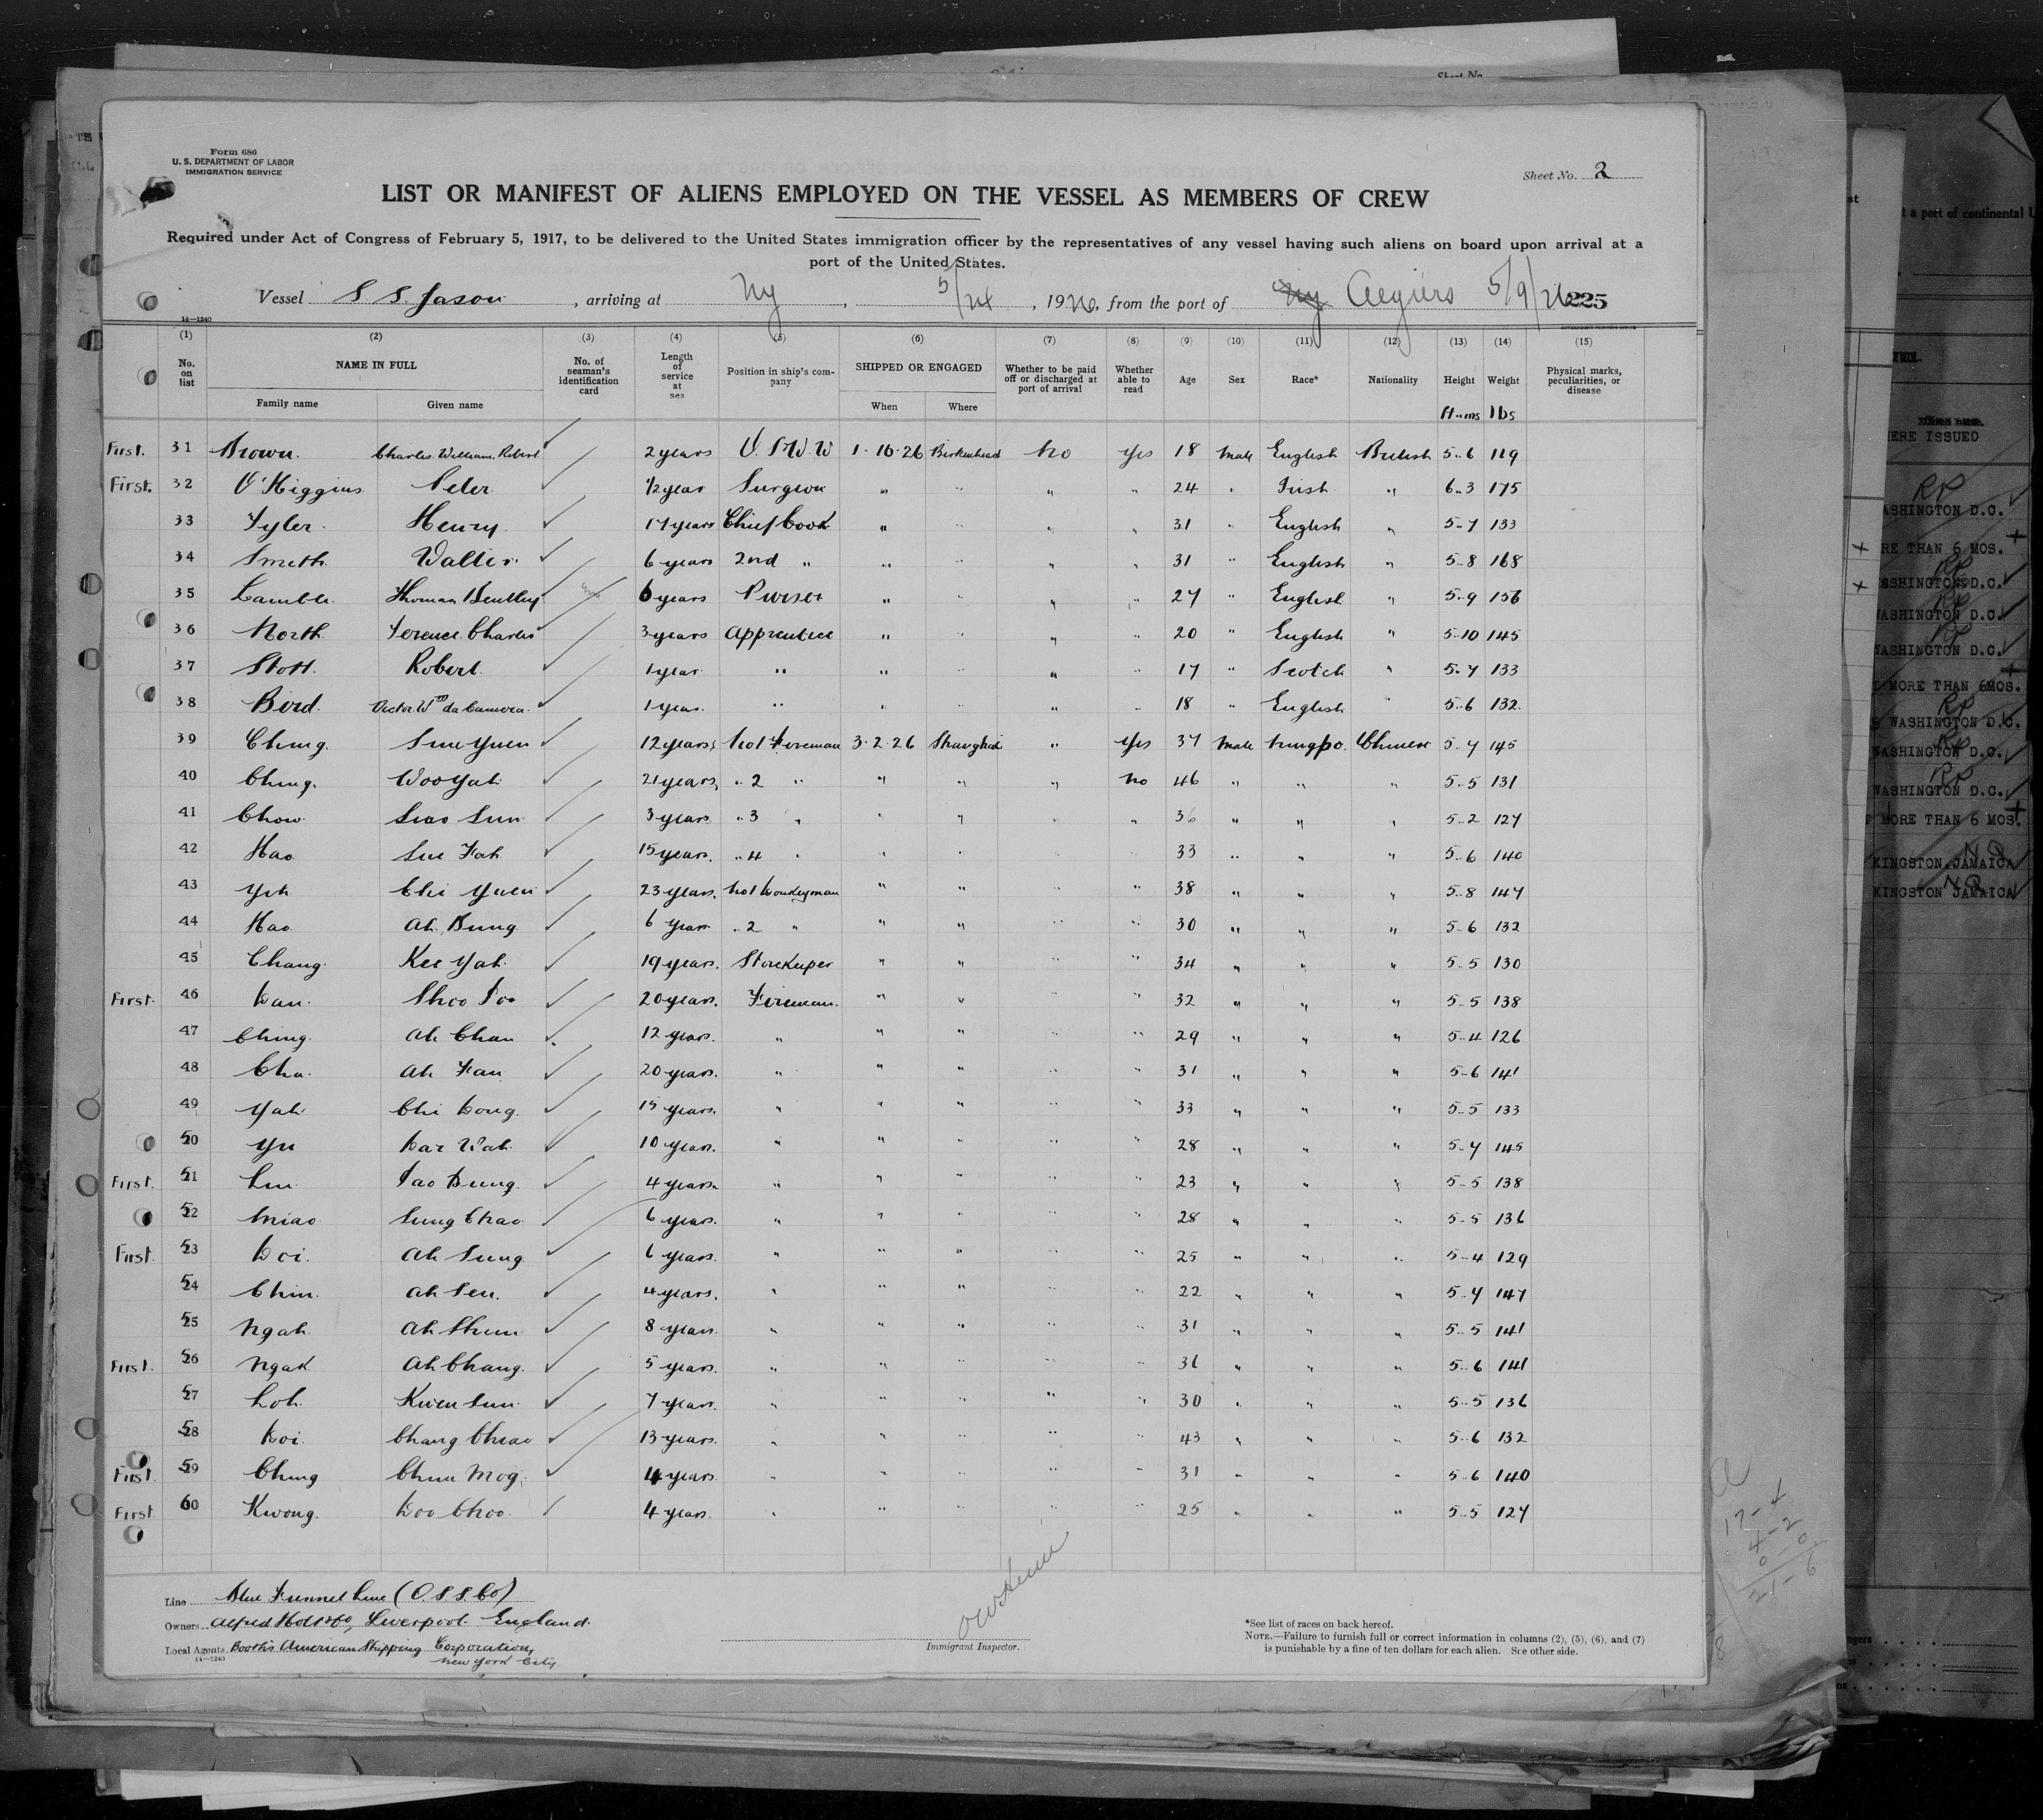 Sheet No.
Form 680
U. S. DEPARTMENT OF LABOR
IMMIGRATION SERVICE
Sheet No. 2
LIST OR MANIFEST OF ALIENS EMPLOYED ON THE VESSEL AS MEMBERS OF CREW
Required under Act of Congress of February 5, 1917, to be delivered to the United States immigration officer by the representatives of any vessel having such aliens on board upon arrival at a
port of the United States.
Vessel S. S. Jason, arriving at Ny, 5/24, 1926, from the port of Ny Algiers 5/9/26 225
14—1240
(1) (2) (3) (4) (5) (6) (7) (8) (9) (10) (11) (12) (13) (14) (15)
No. on list NAME IN FULL No. of seaman's identification card Length of service at sea Position in ship's company SHIPPED OR ENGAGED Whether to be paid off or discharged at port of arrival Whether able to read Age Sex Race* Nationality Height Weight Physical marks, peculiarities, or disease
Family name Given name When Where ft. ins lbs
First. 31 Brown. Charles William Robert 2 years 1·10·26 Birkenhead No Yes 18 Male English British 5..6 119
First. 32 O'Higgins Peter 1/2 year Surgeon " " " " 24 " Irish " 6..3 175
33 Tyler. Henry. 17 years Chief Cook " " " " 31 " English " 5..7 133
34 Smith Walter. 6 years 2nd " " " " " 31 " English " 5..8 168
35 Lamble Thomas Bentley 6 years Purser " " " " 27 " English " 5..9 156
36 North Terence Charles 3 years Apprentice " " " " 20 " English " 5..10 145
37 Stott. Robert. 1 year " " " " " 17 " Scotch " 5..7 133
38 Bird. Victor Wm da Camera 1 year. " " " " " 18 " English " 5..6 132
39 Ching. Sue Yuen 12 years No 1 Fireman 3·2·26 Shanghai " Yes 37 Male Ningpo. Chinese 5..7 145
40 Ching. Woo Yah 21 years " 2 " " " " No 46 " " " 5..5 131
41 Chow. Siao Sun 3 years " 3 " " " " " 36 " " " 5..2 127
42 Hao Sue Fah 15 years. " 4 " " " " " 33 " " " 5..6 140
43 Yih Chi Yuen 23 years. No 1 Donkeyman " " " " 38 " " " 5..8 147
44 Hao. Ah Bung. 6 years " 2 " " " " " 30 " " " 5..6 132
45 Chang. Kee Yah 19 years. Storekeeper " " " " 34 " " " 5..5 130
First. 46 Dan. Shoo Foo 20 years. Fireman. " " " " 32 " " " 5..5 138
47 Ching. Ah Chan 12 years. " " " " " 29 " " " 5..4 126
48 Cha. Ah Fan 20 years. " " " " " 31 " " " 5..6 141
49 Yah Chi Dong. 15 years. " " " " " 33 " " " 5..5 133
50 Yu Dar Wah 10 years. " " " " " 28 " " " 5..7 145
First. 51 Lin. Pao Bung. 4 years. " " " " " 23 " " " 5..5 138
52 Miao Sung Chao 6 years. " " " " " 28 " " " 5..5 136
First. 53 Doi. Ah Sung. 6 years. " " " " " 25 " " " 5..4 129
54 Chin. Ah Sen. 4 years. " " " " " 22 " " " 5..7 147
55 Ngah. Ah Shun 8 years. " " " " " 31 " " " 5..5 141
First. 56 Ngah Ah Chang. 5 years. " " " " " 31 " " " 5..6 141
57 Loh. Kwen Sun 7 years. " " " " " 30 " " " 5..5 136
58 Doi. Chang Chiao 13 years. " " " " " 43 " " " 5..6 132
First. 59 Ching Chin Mog. 4 years " " " " " 31 " " " 5..6 140
First. 60 Kwong. Doo Choo 4 years. " " " " " 25 " " " 5..5 127
Line Blue Funnel Line (O.S.S.Co)
Owners Alfred Holt & Co, Liverpool England.
Local Agents Booth's American Shipping Corporation,
New York City
14—1240
Immigrant Inspector.
*See list of races on back hereof.
NOTE.—Failure to furnish full or correct information in columns (2), (5), (6), and (7)
is punishable by a fine of ten dollars for each alien. See other side.
17-4
4-2
0-0
21-6
t a port of continental U
ERE ISSUED
ASHINGTON D.C.
RE THAN 6 MOS.
SHINGTON D.C.
WASHINGTON D.C.
WASHINGTON D.C.
MORE THAN 6MOS.
WASHINGTON D.C.
WASHINGTON D.C.
WASHINGTON D.C.
MORE THAN 6 MOS.
KINGSTON, JAMAICA
KINGSTON JAMAICA